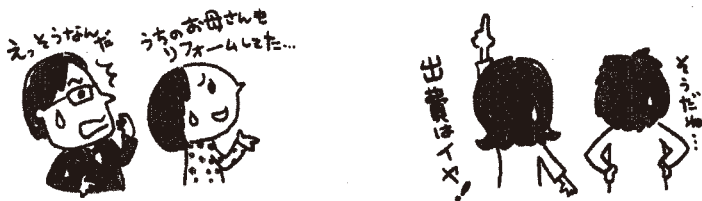 えっそうなんだ
うちのお母さんも
リフォームしてた…
出費はイヤ!
そうだね…